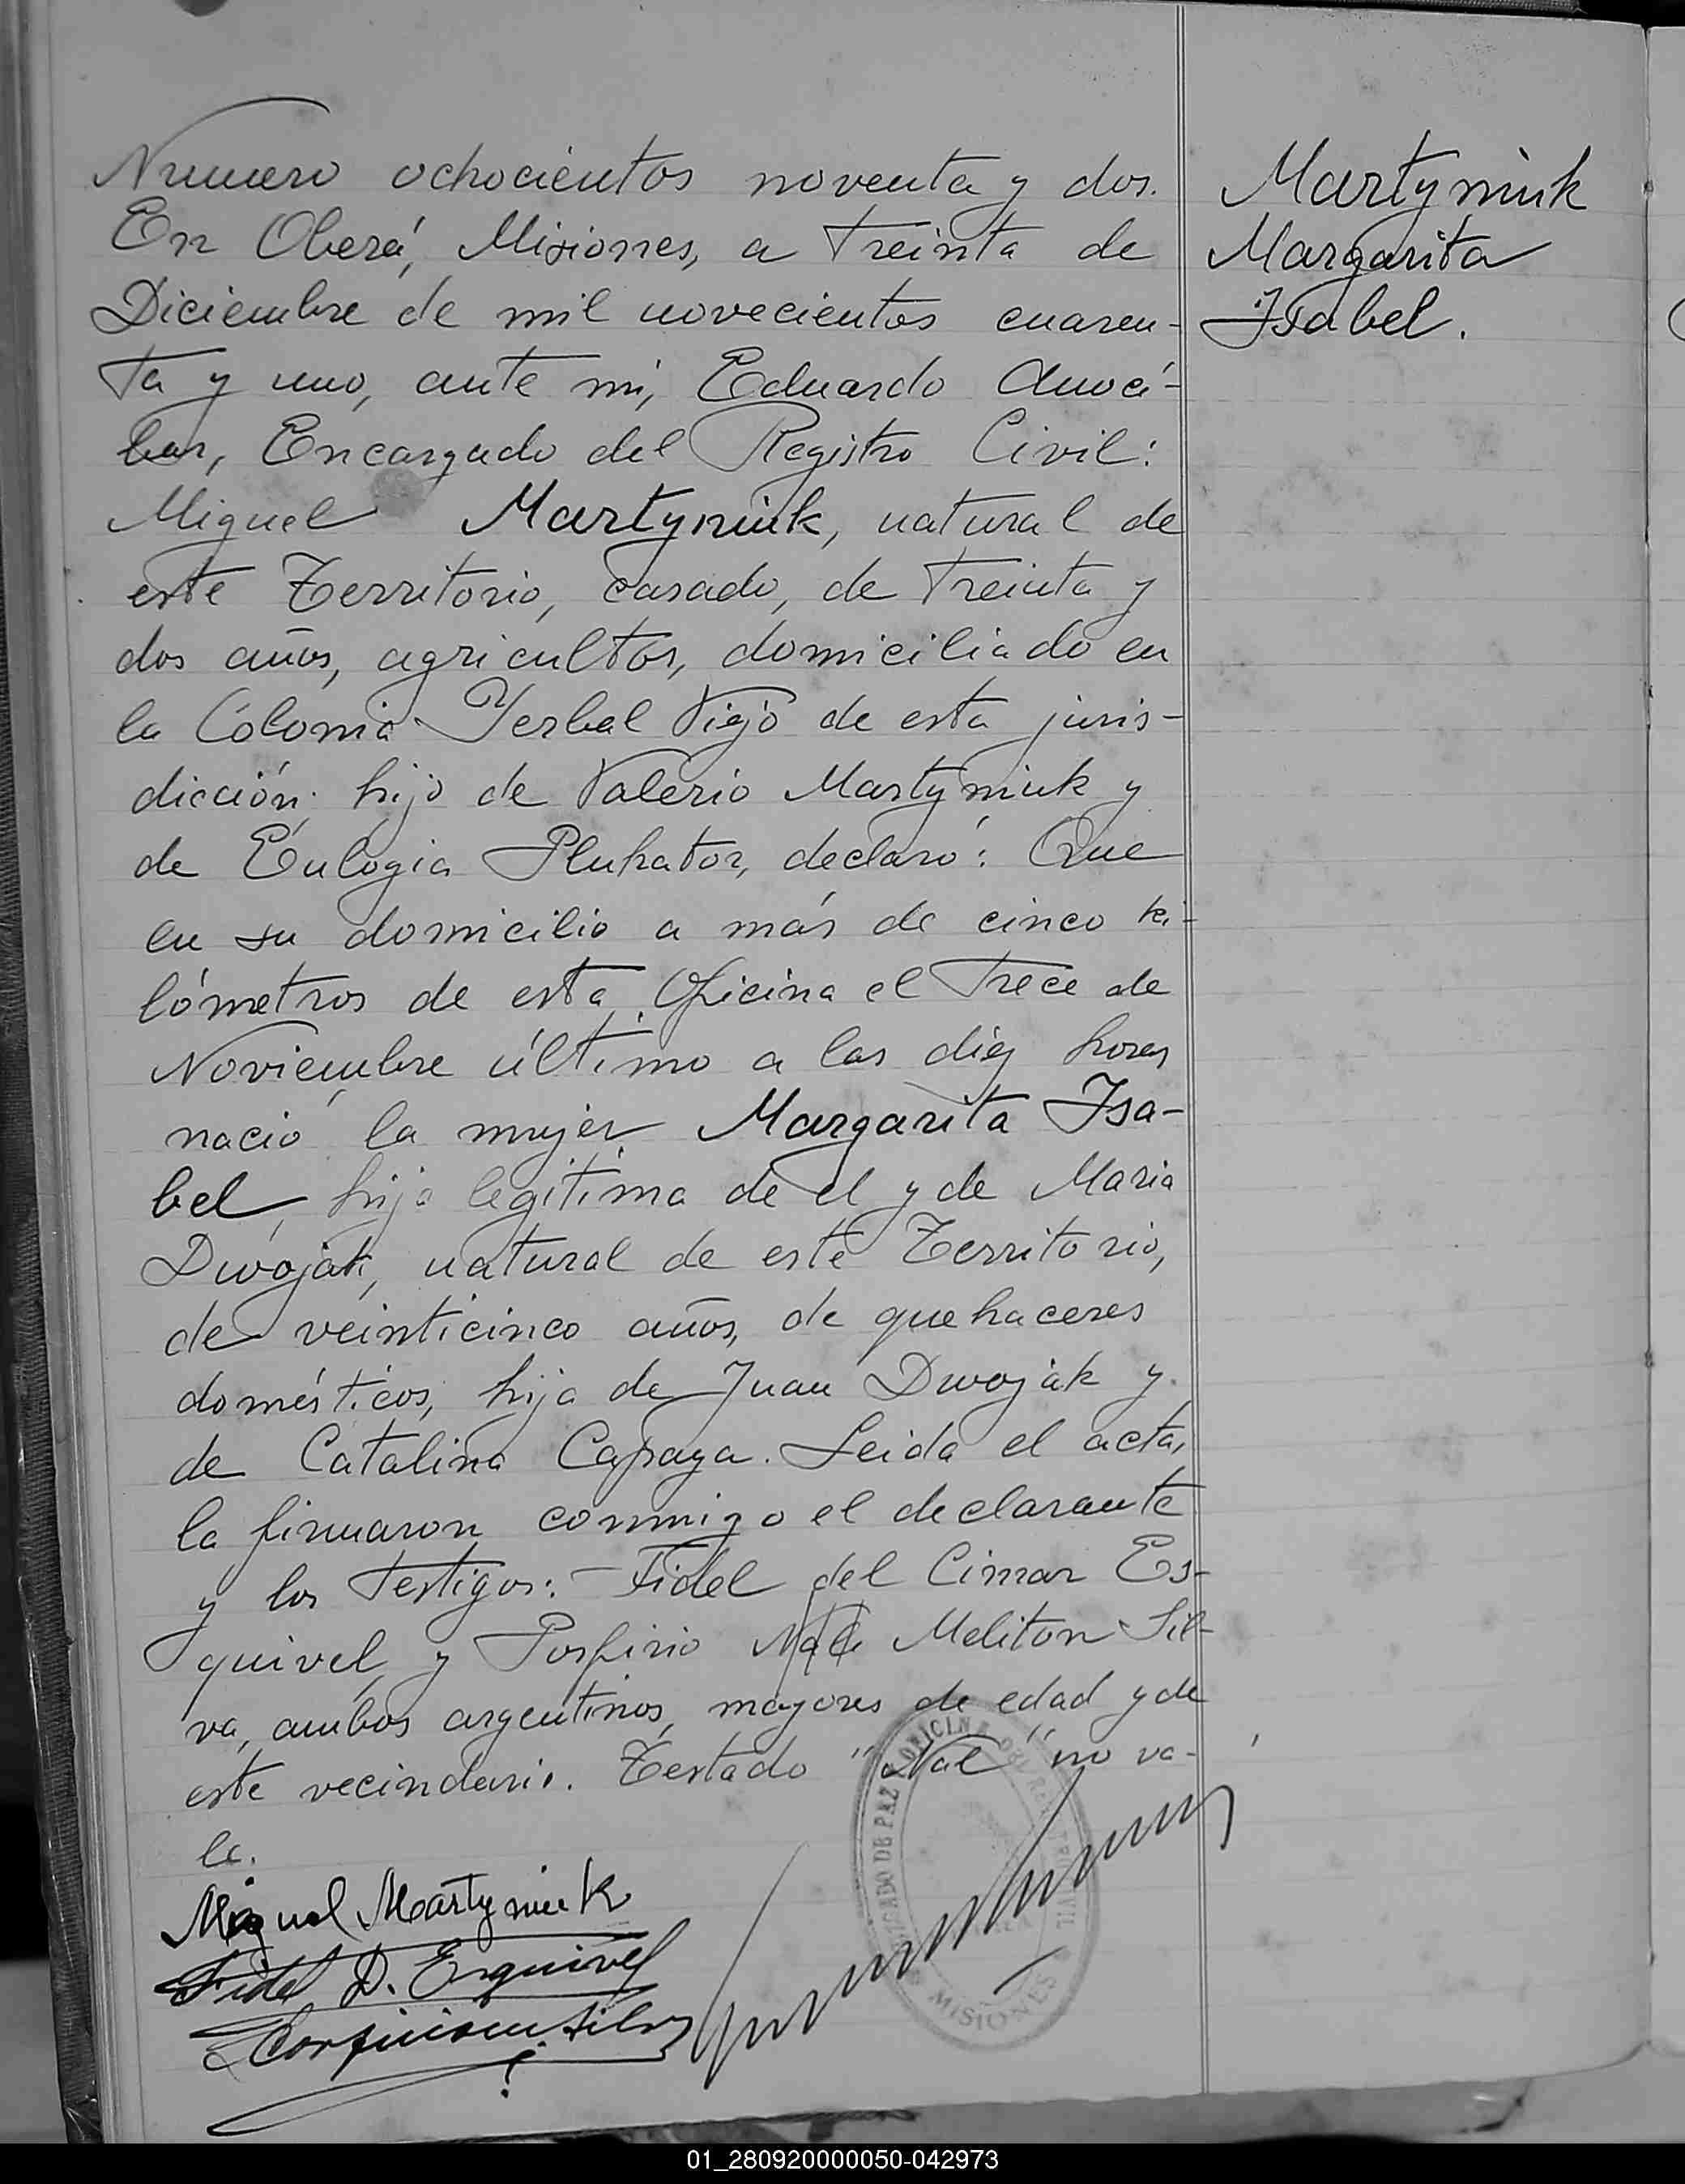 Numero ochocientos noventa y dos.
En Oberá, Misiones, a treinta de
Diciembre de mil novecientos cuaren-
ta y uno, ante mi, Eduardo Amoci-
bar, Encargado del Registro Civil:
Miguel Martyniuk, natural de
este Territorio, casado, de treinta y
dos años, agricultor, domiciliado en
la Colonia Yerbal Viejo de esta juris-
dicción, hijo de Valerio Martyniuk y
de Eulogia Pluhator, declaró: Que
en su domicilio a más de cinco ki-
lómetros de esta Oficina el trece de
Noviembre último a las diez horas
nació la mujer Margarita Isa-
bel, hija legitima de el y de Maria
Dwojak, natural de este Territorio,
de veinticinco años, de quehaceres
domésticos, hija de Juan Dwojak y
de Catalina Capaya. Leida el acta,
la firmaron conmigo el declarante
y los testigos: Fidel del Cimar Es-
quivel, y Porfirio Nal Meliton Sil-
va, ambos argentinos, mayores de edad y de
este vecindario. Testado "Nal" no va-
le.
Miguel Martyniuk
Fidel D. Esquivel
Porfirio M Silva
JUZGADO DE PAZ Y OFICINA DEL REGISTRO CIVIL
MISIONES
Martyniuk
Margarita
Isabel.
01_280920000050-042973